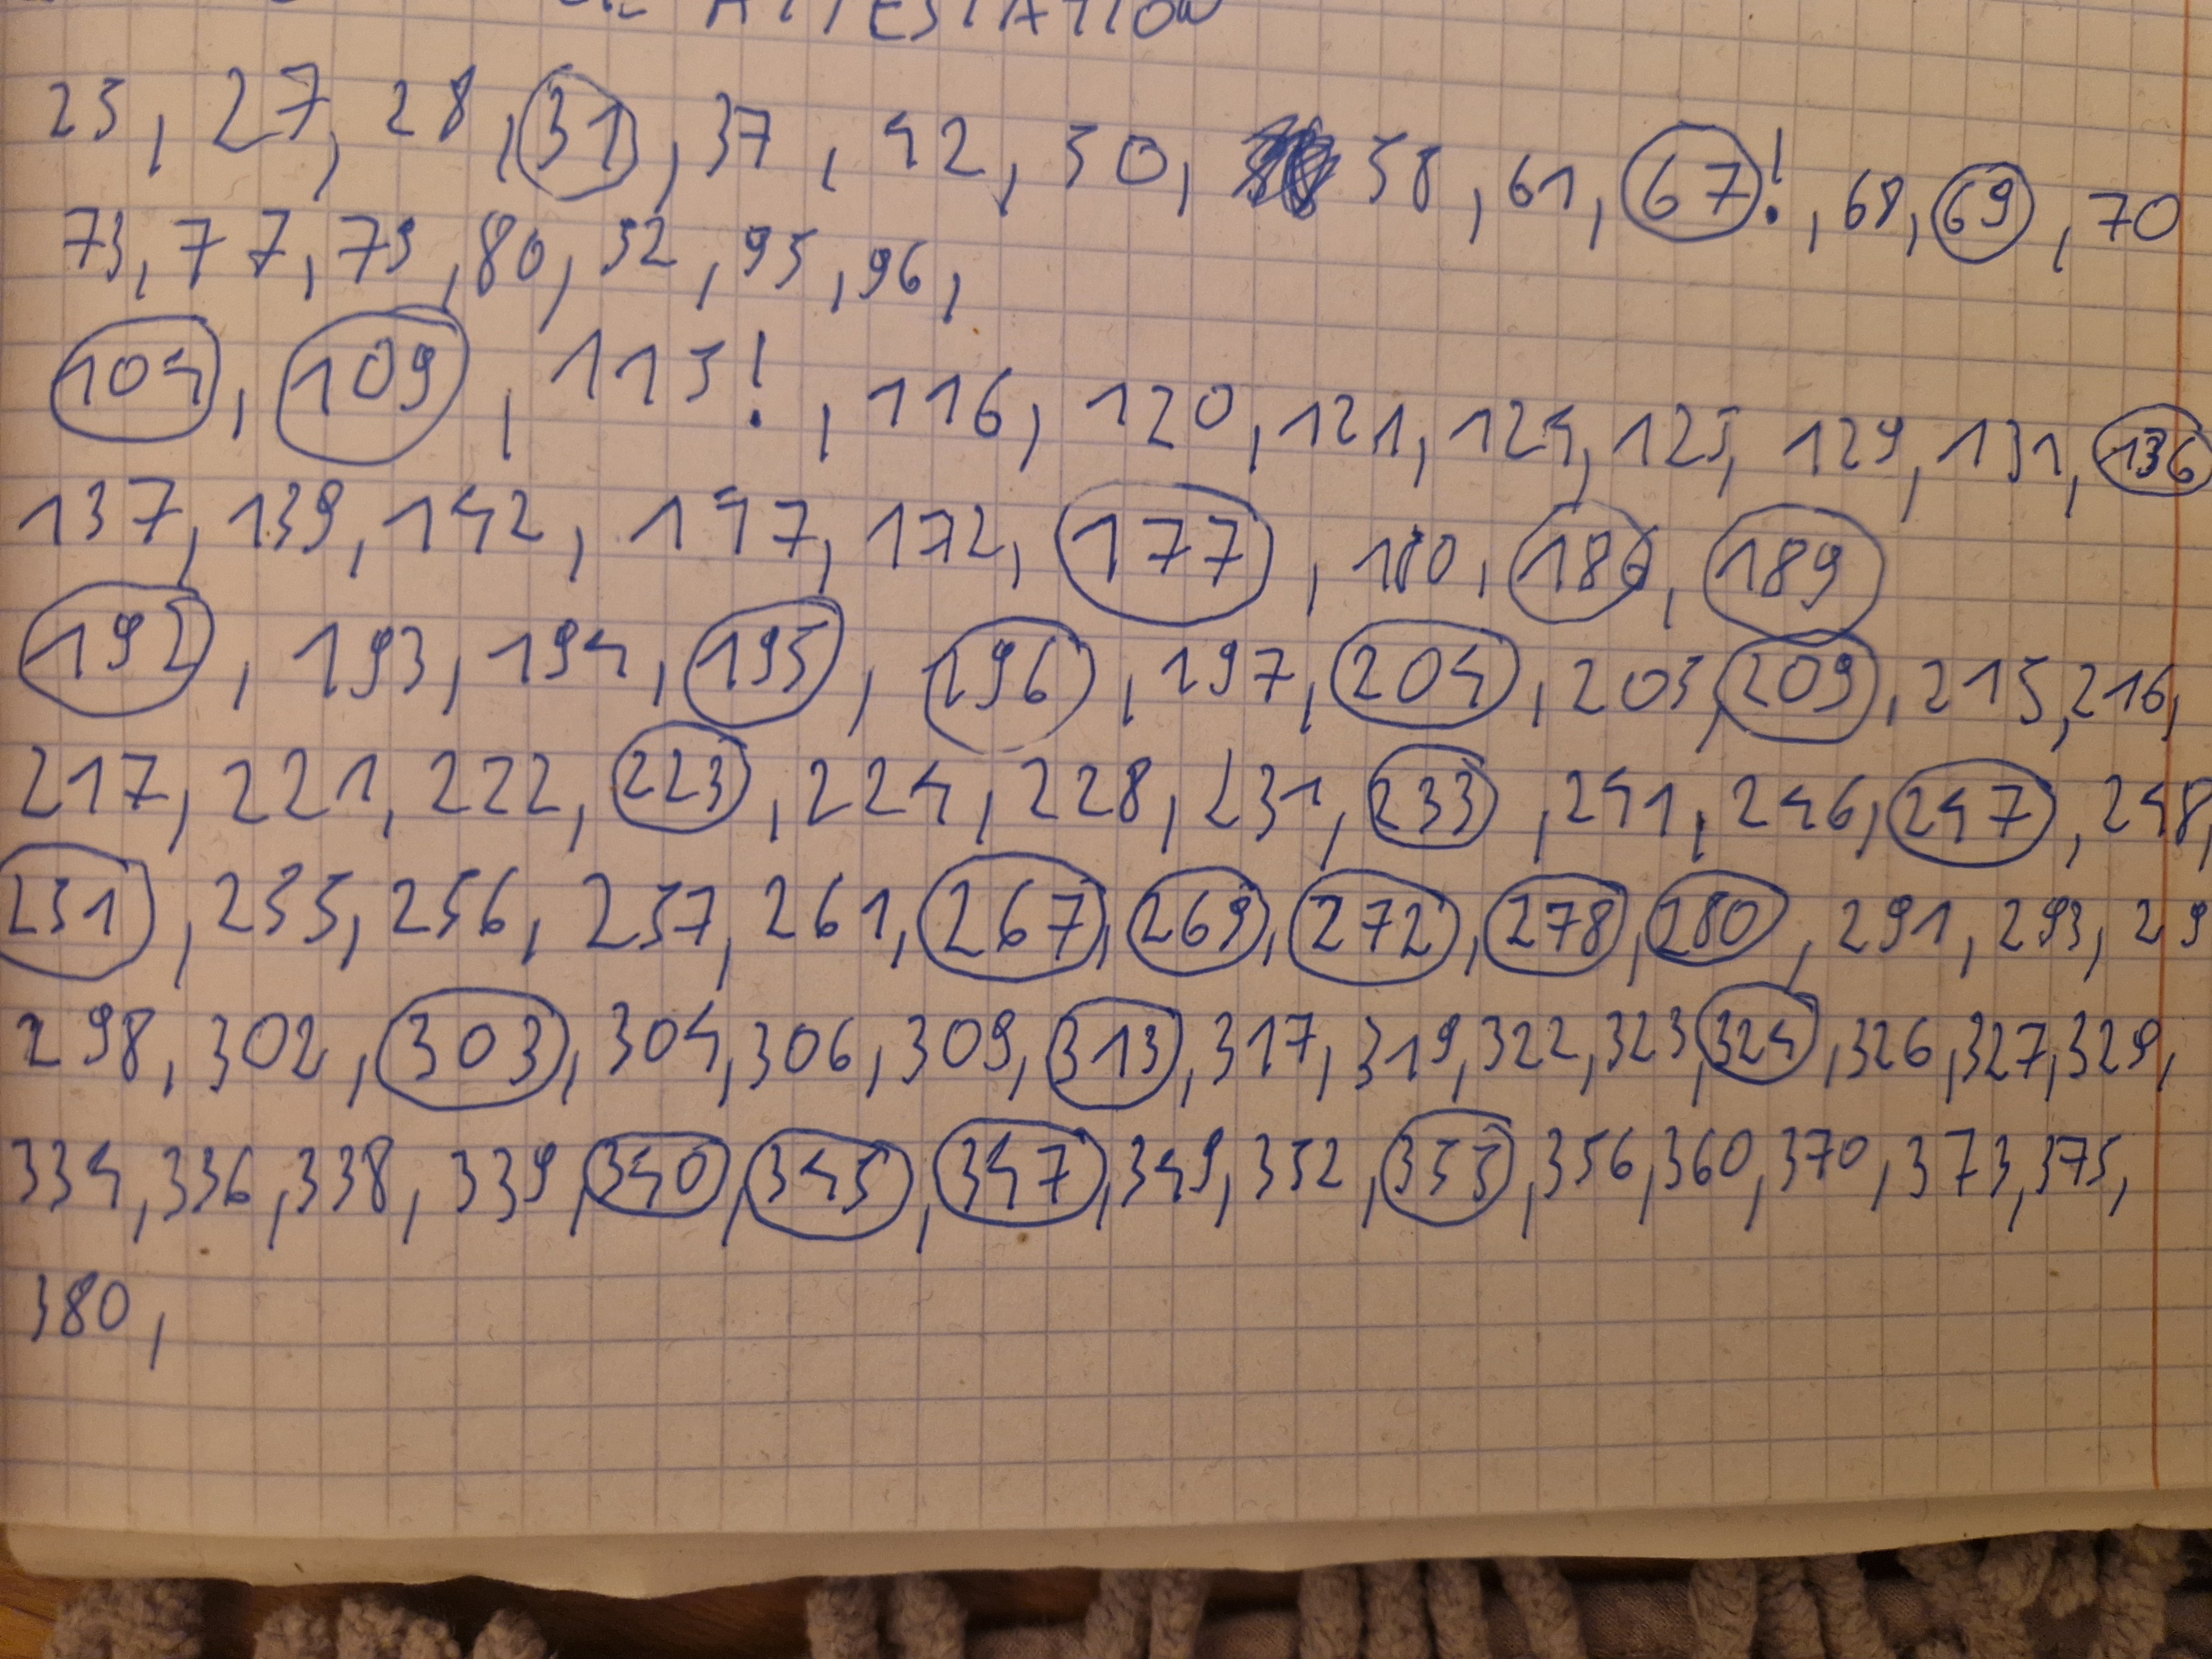 ATTESTATION
25, 27, 28, 31, 37, 42, 50, 58, 61, 67!, 68, 69, 70
73, 77, 79, 80, 92, 95, 96,
104, 109, 115!, 116, 120, 121, 124, 125, 129, 131, 136
137, 139, 142, 147, 172, 177, 180, 186, 189
192, 193, 194, 195, 196, 197, 204, 205, 209, 215, 216,
217, 221, 222, 223, 224, 228, 231, 233, 241, 246, 247, 248,
251, 255, 256, 257, 261, 267, 269, 272, 278, 280, 291, 293, 29
298, 302, 303, 304, 306, 309, 313, 317, 319, 322, 323, 324, 326, 327, 329,
334, 336, 338, 339, 340, 345, 347, 349, 352, 355, 356, 360, 370, 373, 375,
380,